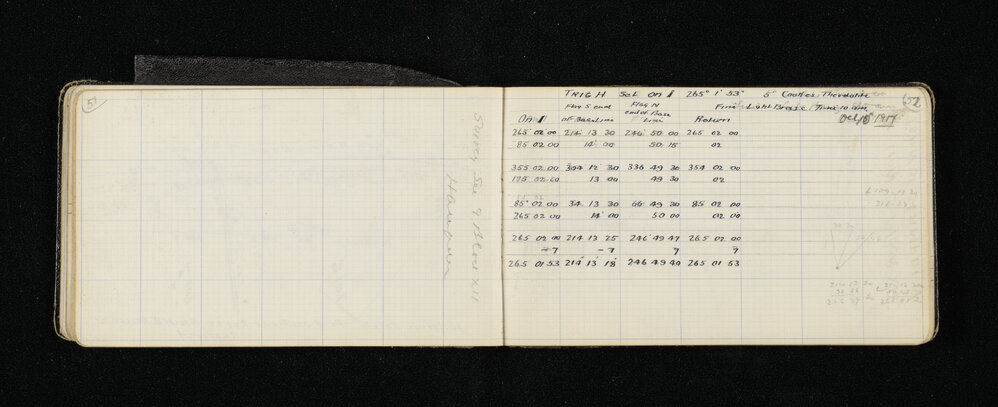 51
Survey Sec 9 Block XII
TRIG H Set on 265° 1' 53" 5" Cooke's Theodolite
52
Flag S end Flag N Fine Light Breeze Time 10 am
of Baseline end of Base Line Oct 15 1917
Return
265 02 00 214 13 30 246 50 00 265 02 00
85 02 00 14 00 50 15 02
355 02 00 304 12 30 336 49 30 354 02 00
175 02 00 13 00 49 30 02
85° 02 00 34 13 30 66 49 30 85 02 00
265 02 00 14 00 50 00 02 00
265 02 00 214 13 25 246 49 47 265 02 00
-7 -7 7 7
265 01 53 214 13 18 246 49 40 265 01 53